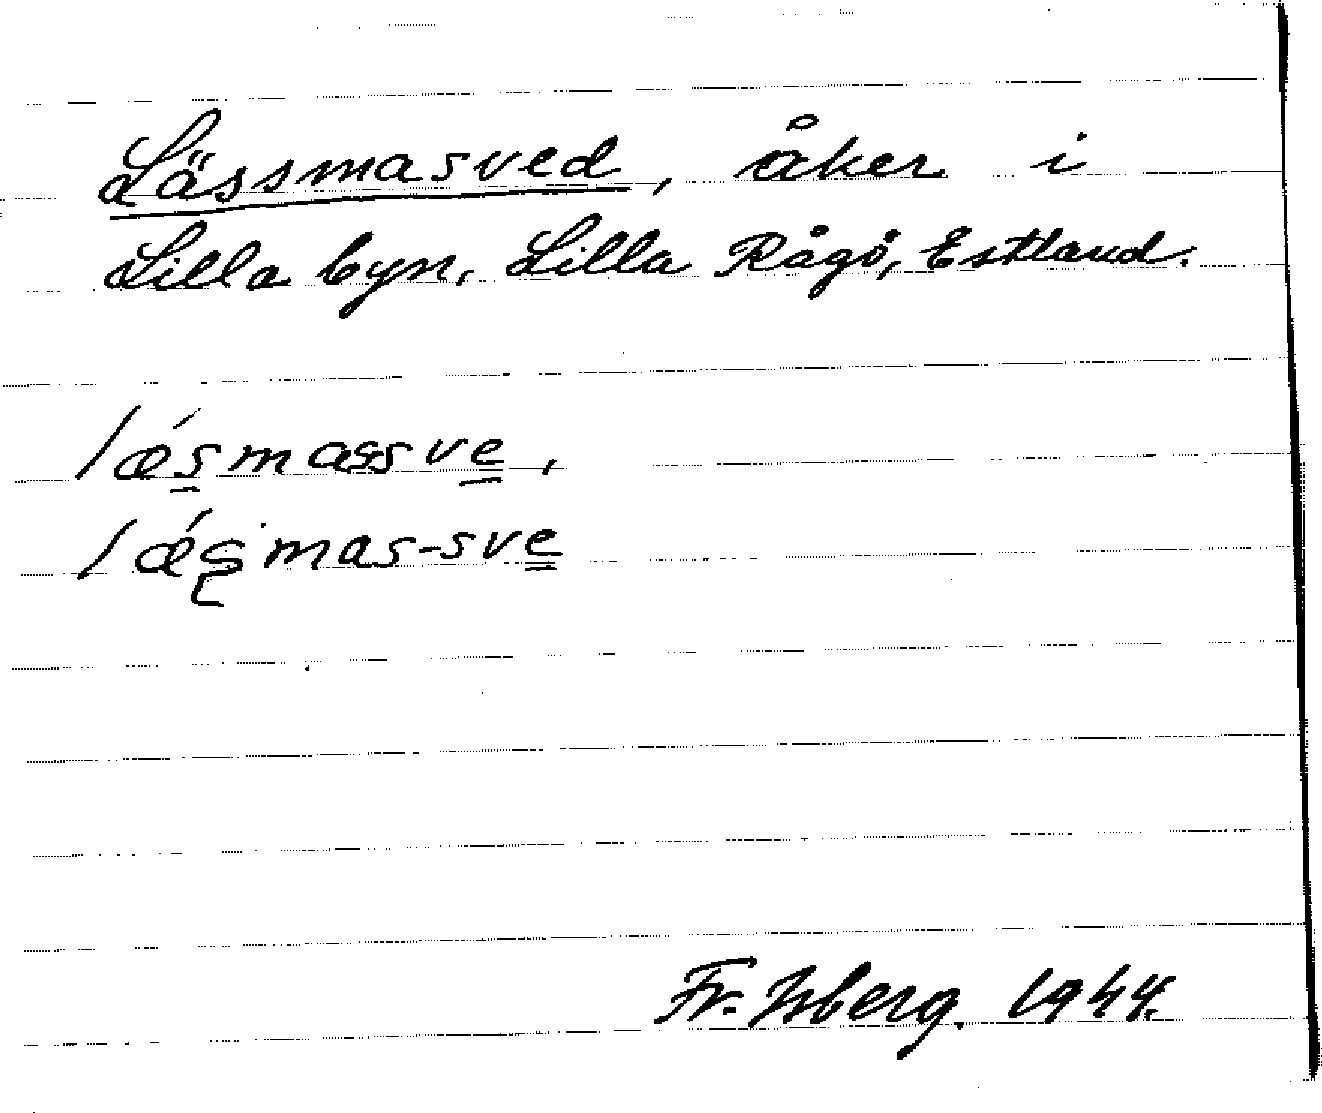 Lässmasved, åker i
Lilla byn, Lilla Rågö, Estland.
lǽs̲massve̳,
lǽs̨mas-sve̳
Fr. Isberg. 1944.